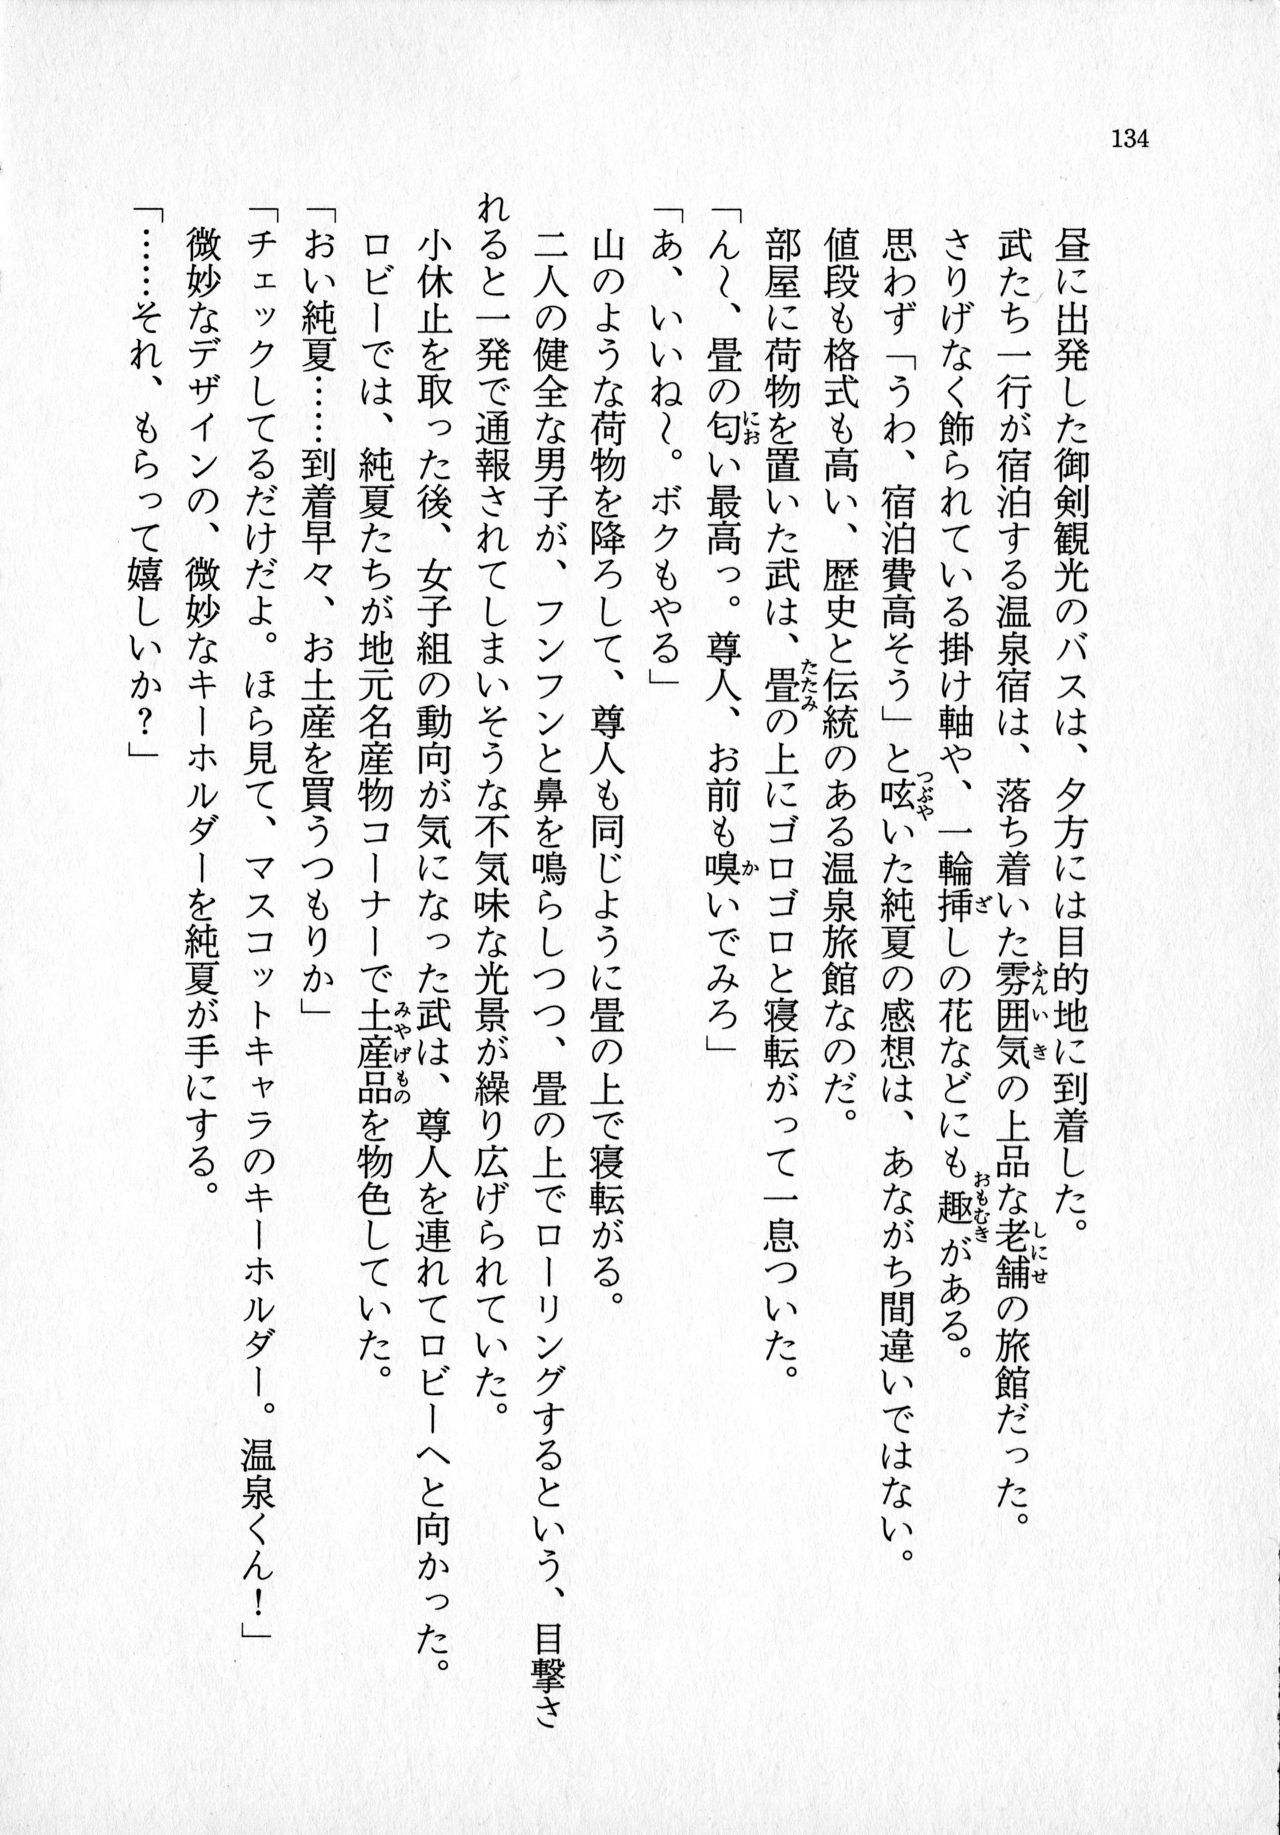 134
昼に出発した御剣観光のバスは、夕方には目的地に到着した。
武たち一行が宿泊する温泉宿は、落ち着いた雰囲気の上品な老舗の旅館だった。
さりげなく飾られている掛け軸や、一輪挿しの花などにも趣がある。
思わず「うわ、宿泊費高そう」と呟いた純夏の感想は、あながち間違いではない。
値段も格式も高い、歴史と伝統のある温泉旅館なのだ。
部屋に荷物を置いた武は、畳の上にゴロゴロと寝転がって一息ついた。
「ん〜、畳の匂い最高っ。尊人、お前も嗅いでみろ」
「あ、いいね〜。ボクもやる」
山のような荷物を降ろして、尊人も同じように畳の上で寝転がる。
二人の健全な男子が、フンフンと鼻を鳴らしつつ、畳の上でローリングするという、目撃さ
れると一発で通報されてしまいそうな不気味な光景が繰り広げられていた。
小休止を取った後、女子組の動向が気になった武は、尊人を連れてロビーへと向かった。
ロビーでは、純夏たちが地元名産物コーナーで土産品を物色していた。
「おい純夏……到着早々、お土産を買うつもりか」
「チェックしてるだけだよ。ほら見て、マスコットキャラのキーホルダー。温泉くん！」
微妙なデザインの、微妙なキーホルダーを純夏が手にする。
「……それ、もらって嬉しいか？」